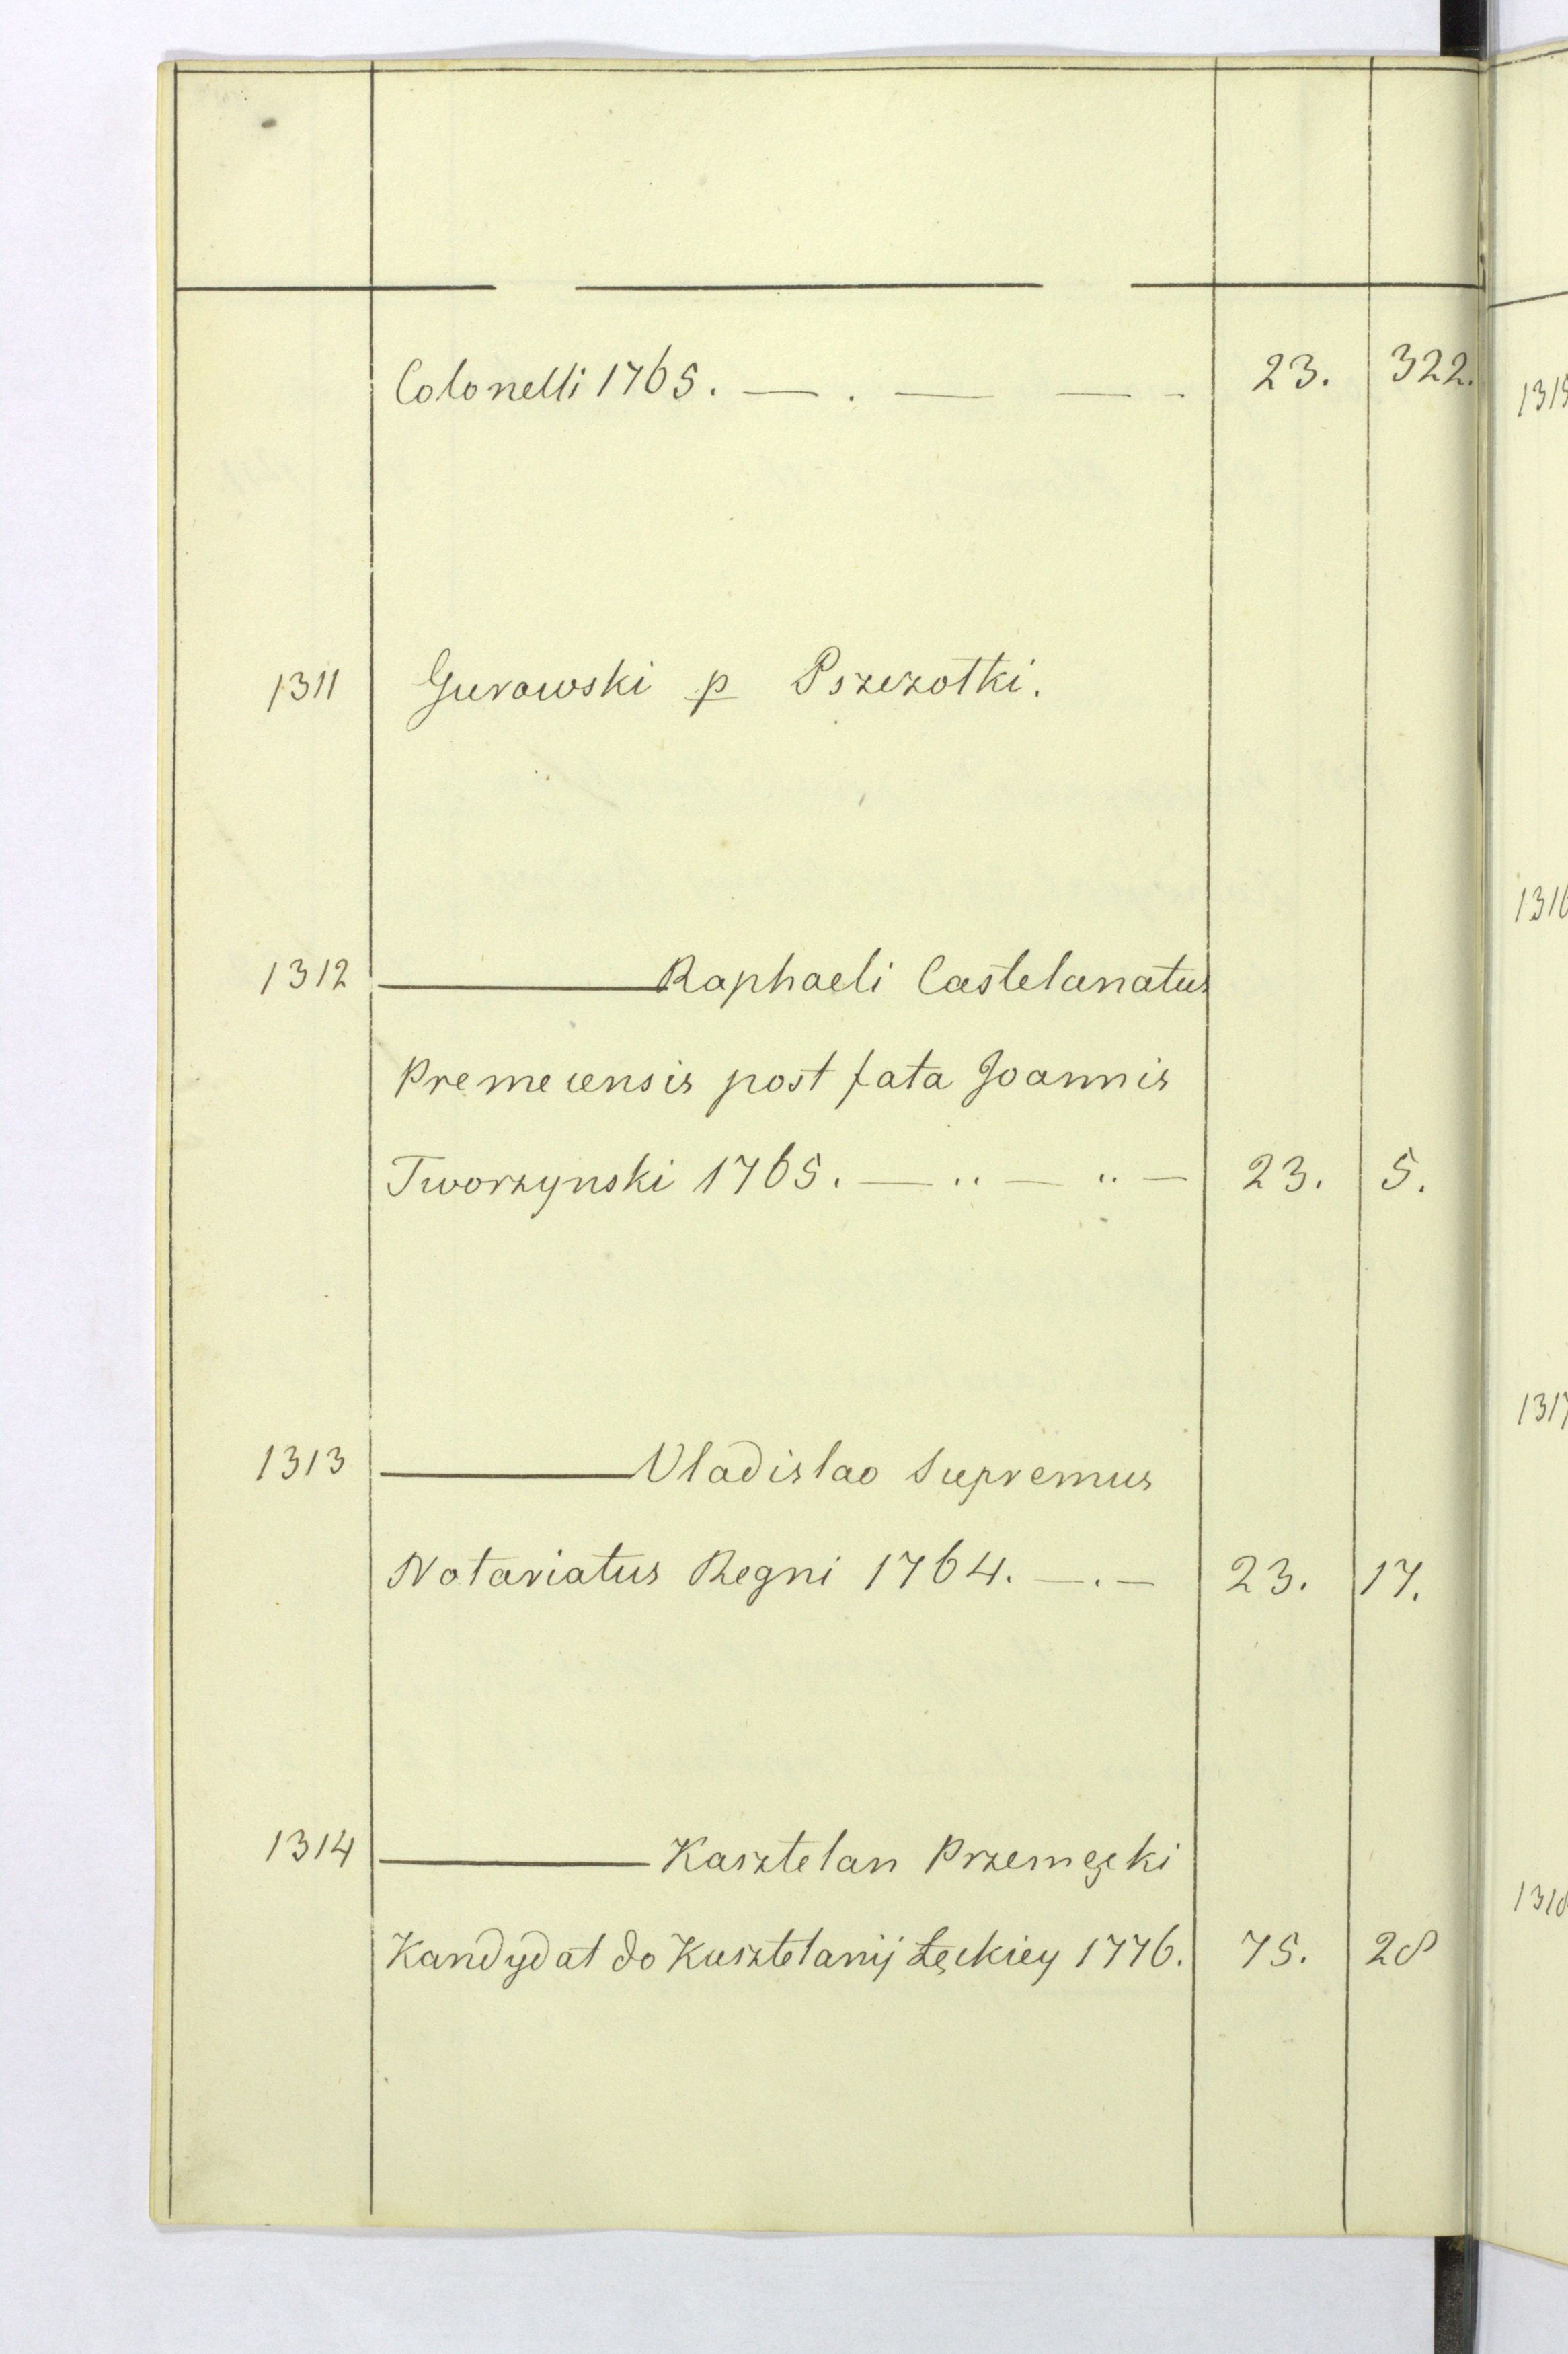 Colonelli 1765. — . — — - 23. 322.
1311 Gurowski p Pszczotki.
1312 ——— Raphaeli Castelanatus
Premecensis post fata Joannis
Tworzynski 1765. — .. — .. — 23. 5.
1313 ——— Vladislao Supremus
Notariatus Regni 1764. — . — 23. 17.
1314 ——— Kasztelan Przemęcki
Kandydat do Kasztelanij Łęckiey 1776. 75. 28
1315
1316
1317
1318